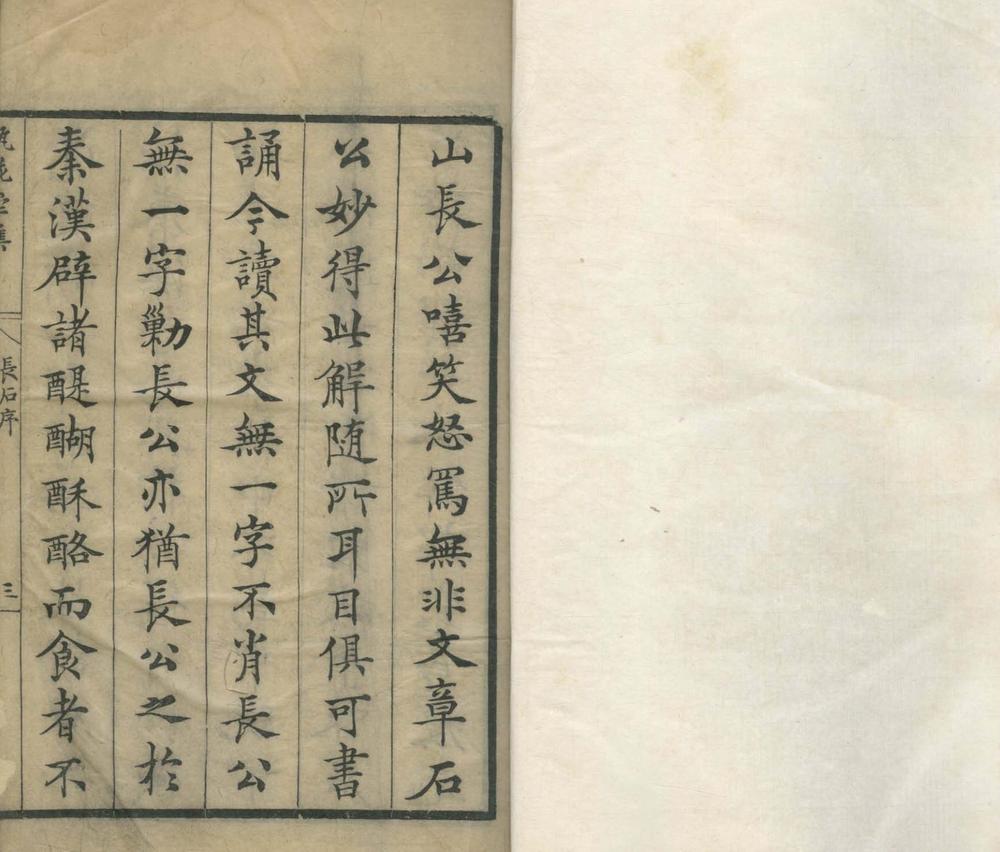 山長公嘻笑怒罵無非文章石
公妙得此解随所耳目俱可書
誦今讀其文無一字不肖長公
無一字勦長公亦猶長公之於
秦漢辟諸醍醐酥酪而食者不
長石序
三